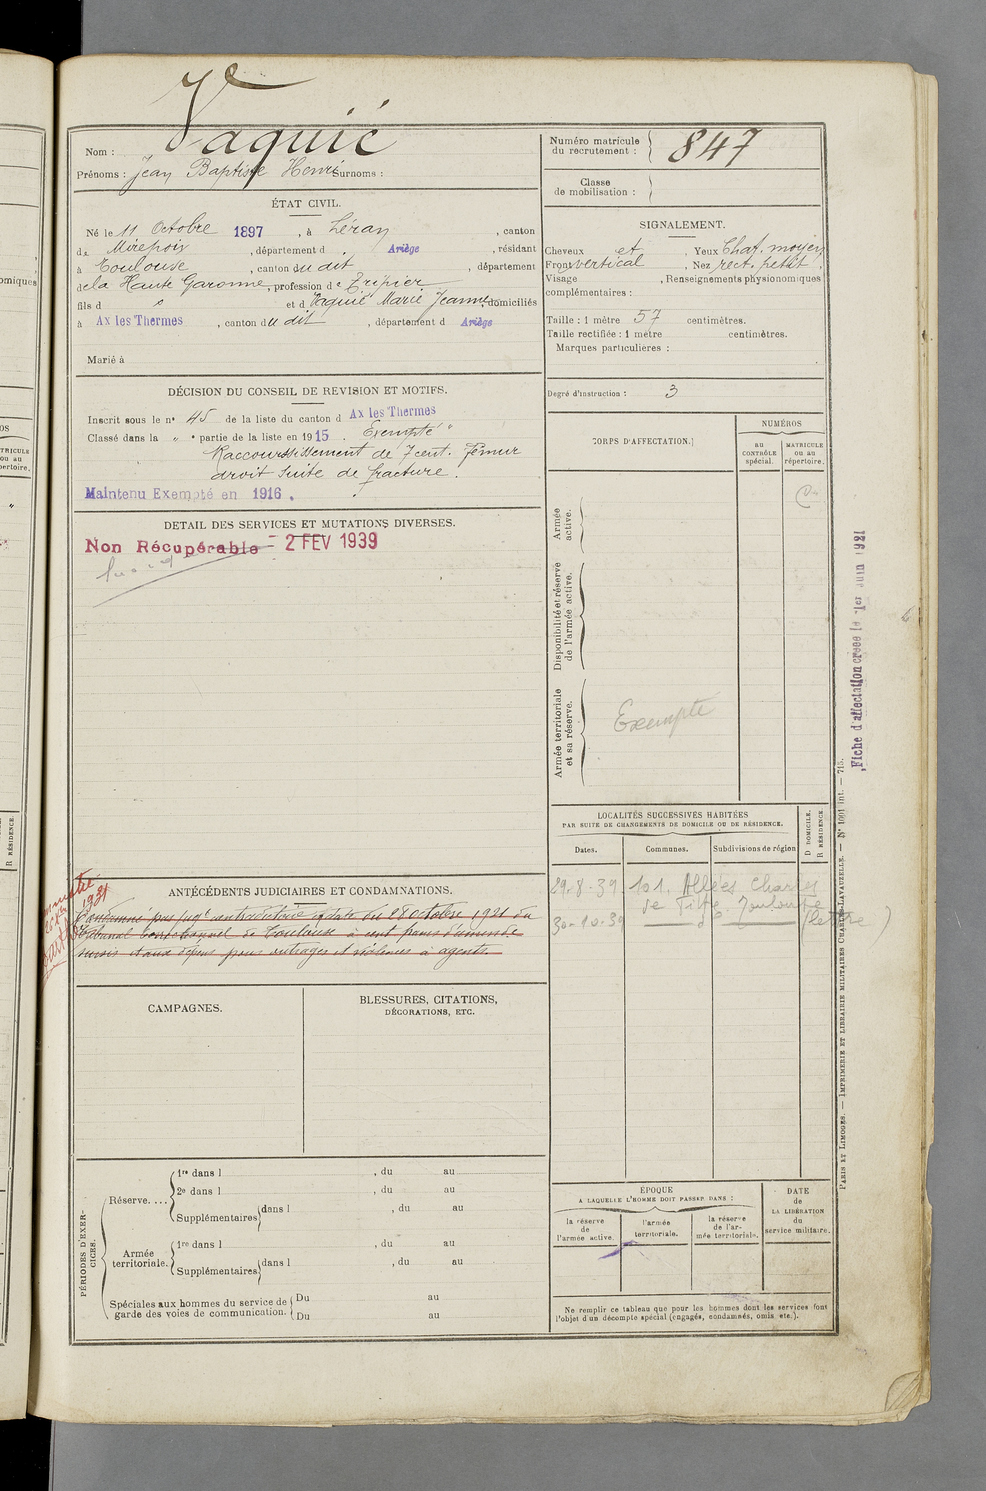 Nom : Vaquié
Prénoms : Jean Baptiste Henri Surnoms :
Numéro matricule du recrutement : 847
Classe de mobilisation :
ÉTAT CIVIL.
Né le 11 Octobre 1897, à Léran, canton
de Mirepoix, département d Ariège, résidant
à Toulouse, canton du dit, département
de la Haute Garonne, profession de Tripier
fils d et d Vaquié Marie Jeanne, domiciliés
à Ax les Thermes, canton du dit, département d Ariège
Marié à
SIGNALEMENT.
Cheveux et, Yeux Chat. moyen
Front vertical, Nez rect. petit.
Visage, Renseignements physionomiques
complémentaires :
Taille : 1 mètre 57 centimètres.
Taille rectifiée : 1 mètre centimètres.
Marques particulières :
Degré d'instruction : 3
DÉCISION DU CONSEIL DE REVISION ET MOTIFS.
Inscrit sous le n° 45 de la liste du canton d Ax les Thermes
Classé dans la " e partie de la liste en 1915. Exempté "
Raccourssissement de 7 cent. Fémur
droit suite de fracture.
Maintenu Exempté en 1916.
DETAIL DES SERVICES ET MUTATIONS DIVERSES.
Non Récupérable - 2 FEV 1939
CORPS D'AFFECTATION.
NUMÉROS
au CONTRÔLE spécial.
MATRICULE ou au répertoire.
Armée active.
Disponibilité et réserve de l'armée active.
Armée territoriale et sa réserve.
Exempté
Fiche d'affectation créée le 1er Juin 1921
LOCALITÉS SUCCESSIVES HABITÉES
PAR SUITE DE CHANGEMENTS DE DOMICILE OU DE RÉSIDENCE.
Dates. Communes. Subdivisions de région D DOMICILE. R RÉSIDENCE.
29-8-39 101. Allées Charles
de Fitte Toulouse
30-10-39 — d° — (lettre)
ANTÉCÉDENTS JUDICIAIRES ET CONDAMNATIONS.
Condamné par jugt contradictoire en date du 28 Octobre 1921 du
Tribunal Correctionnel de Toulouse à cent francs d'amende
sursis et aux dépens pour outrages et violences à agents.
CAMPAGNES.
BLESSURES, CITATIONS,
DÉCORATIONS, ETC.
PÉRIODES D'EXERCICES.
Réserve....
1re dans l , du au
2e dans l , du au
Supplémentaires dans l , du au
Armée territoriale.
1re dans l , du au
Supplémentaires dans l , du au
Spéciales aux hommes du service de garde des voies de communication.
Du au
Du au
ÉPOQUE
A LAQUELLE L'HOMME DOIT PASSER DANS :
la réserve de l'armée active.
l'armée territoriale.
la réserve de l'armée territoriale.
DATE de LA LIBÉRATION du service militaire.
Ne remplir ce tableau que pour les hommes dont les services font
l'objet d'un décompte spécial (engagés, condamnés, omis etc.).
PARIS ET LIMOGES. — IMPRIMERIE ET LIBRAIRIE MILITAIRES CHARLES-LAVAUZELLE. — N° 1001 int. — 715.